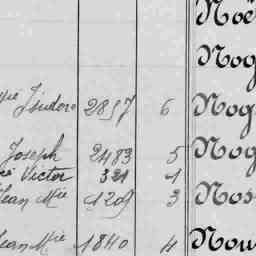 Noë
Nog
Isidore 2857 6 Nog
Joseph 2483 5 Nog
Victor 321 1 Nos
Jean Mie 1209 3
Jean Mie 1840 4 Nou